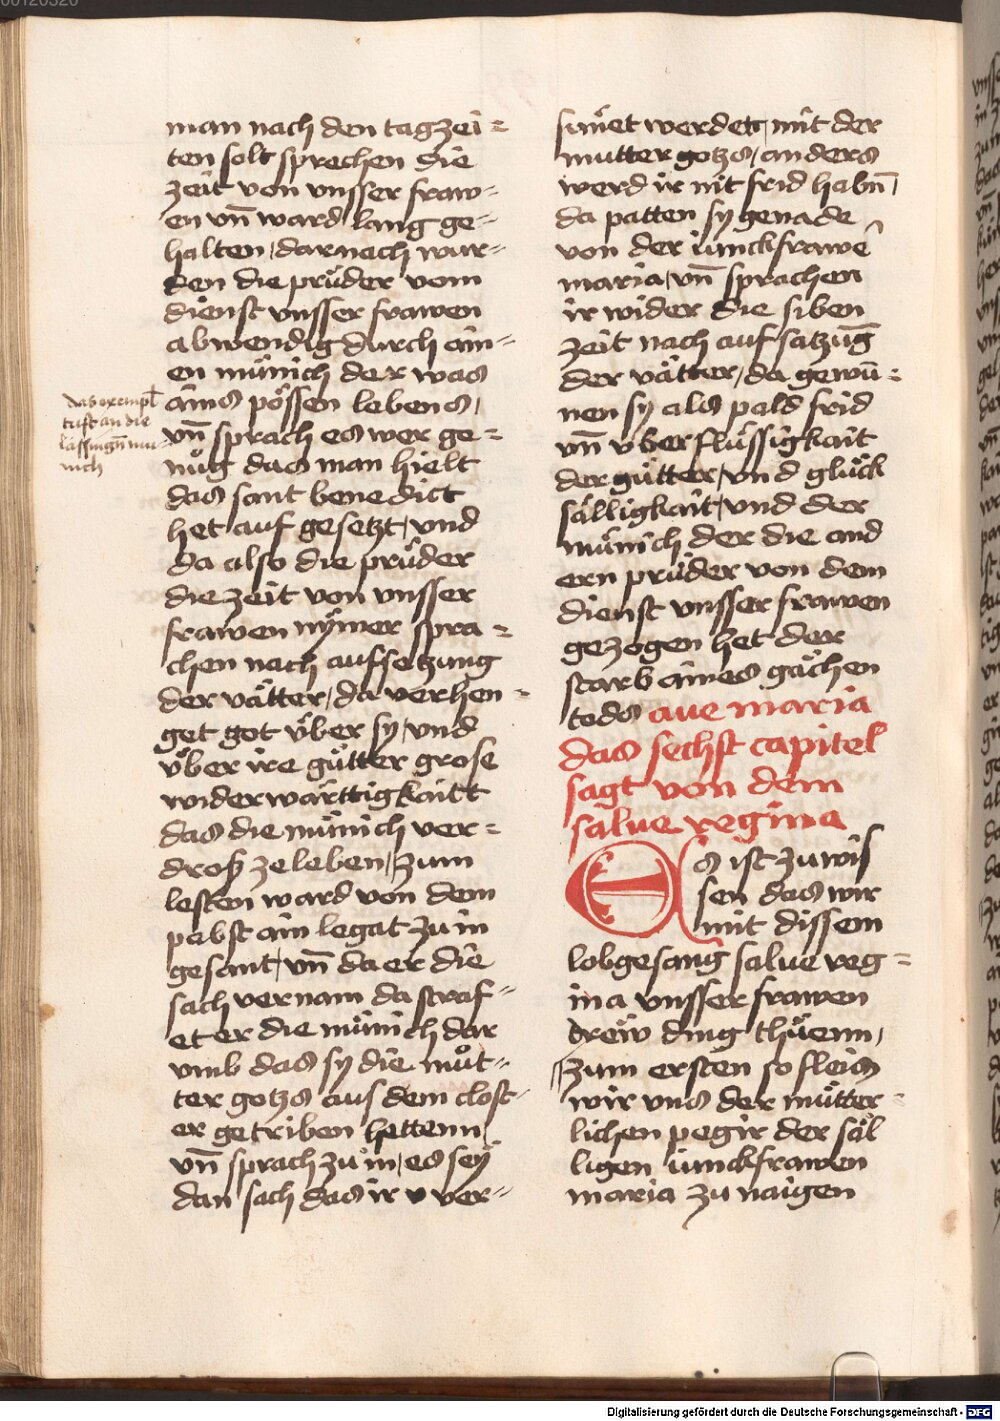 00120320
man nach den tagzei=
ten solt sprechen die
zeit von vnsser fraw=
en vn̄ ward lang ge=
halten, darnach wur=
den die prüder vom
dienst vnsser frawen
abwendig durch ain=
en münich der was
ains pössen lebens,
vn̄ sprach es wer ge=
nůg das man hielt
das sant benedict
het auf gesetzt, vnd
da also die prüder
die zeit von vnsser
frawen nÿmer spra=
chen nach aufsetzung
der vätter, da verhen=
get got v̈ber sy, vnd
v̈ber ire gütter grose
widerwärttigkaitt
das die münich ver=
droß ze leben, zum
lesten ward von dem
pabst ain legat zu in
gesant, vn̄ da er die
sach vernam da straf=
et er die münich dar
vmb das sy die můt=
ter gotzs aus dem clost
er getriben hettenn,
vn̄ sprach zu in, es seÿ
dan sach das ir v ver=
das exempl
tust an die
lässingn̄ mu
nich
sünet werdett, mit der
mutter gotzs, anders
werd ir nit frid habn̄,
da patten sy genade
von der iunckfrawē
maria, vn̄ sprachen
ir wider die siben
zeit nach auf satzūg
der vätter, da gewū=
nen sy als pald frid
vn̄ v̈berflüssigkait
der gütter, vnd glück
sälligkait, vnd der
münich der die and
ern prüder von dem
dienst vnsser frawen
gezogen het der
starb aines gächen
tods aue maria
das sechst capitel
sagt von dem
salue regina
Es ist zu wis
sen das wir
mit dissem
lobgesang salue reg=
ina vnsser frawen
drëw ding thüenn,
zum ersten so fleis
wir vns der mütter=
lichen pegir der säl
ligen iunckfrawen
maria zu naigen
Digitalisierung gefördert durch die Deutsche Forschungsgemeinschaft - DFG